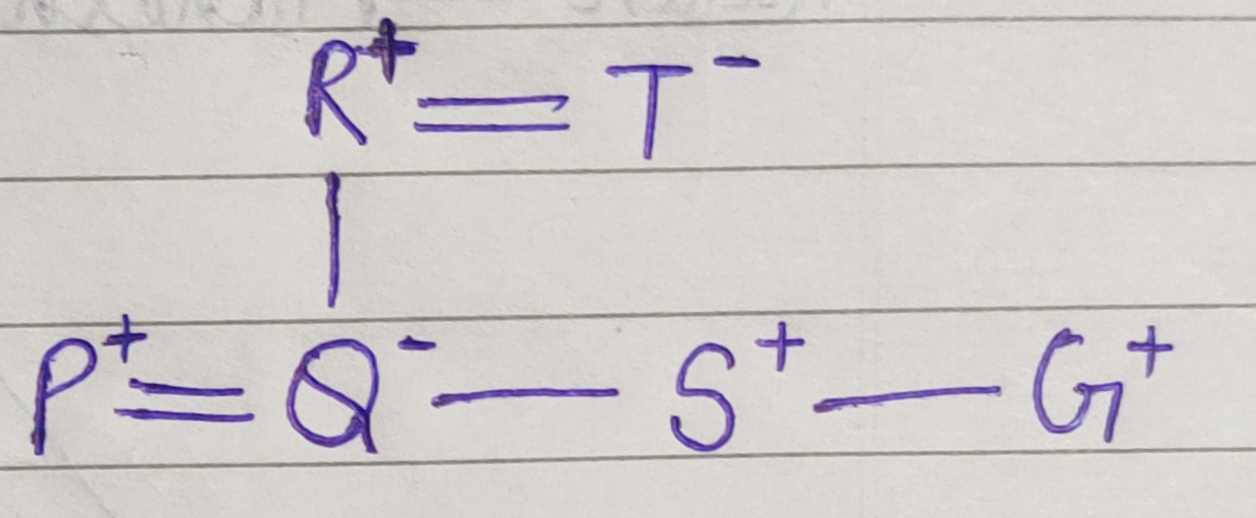 R⁺ = T⁻
|
P⁺ = Q⁻ — S⁺ — G⁺